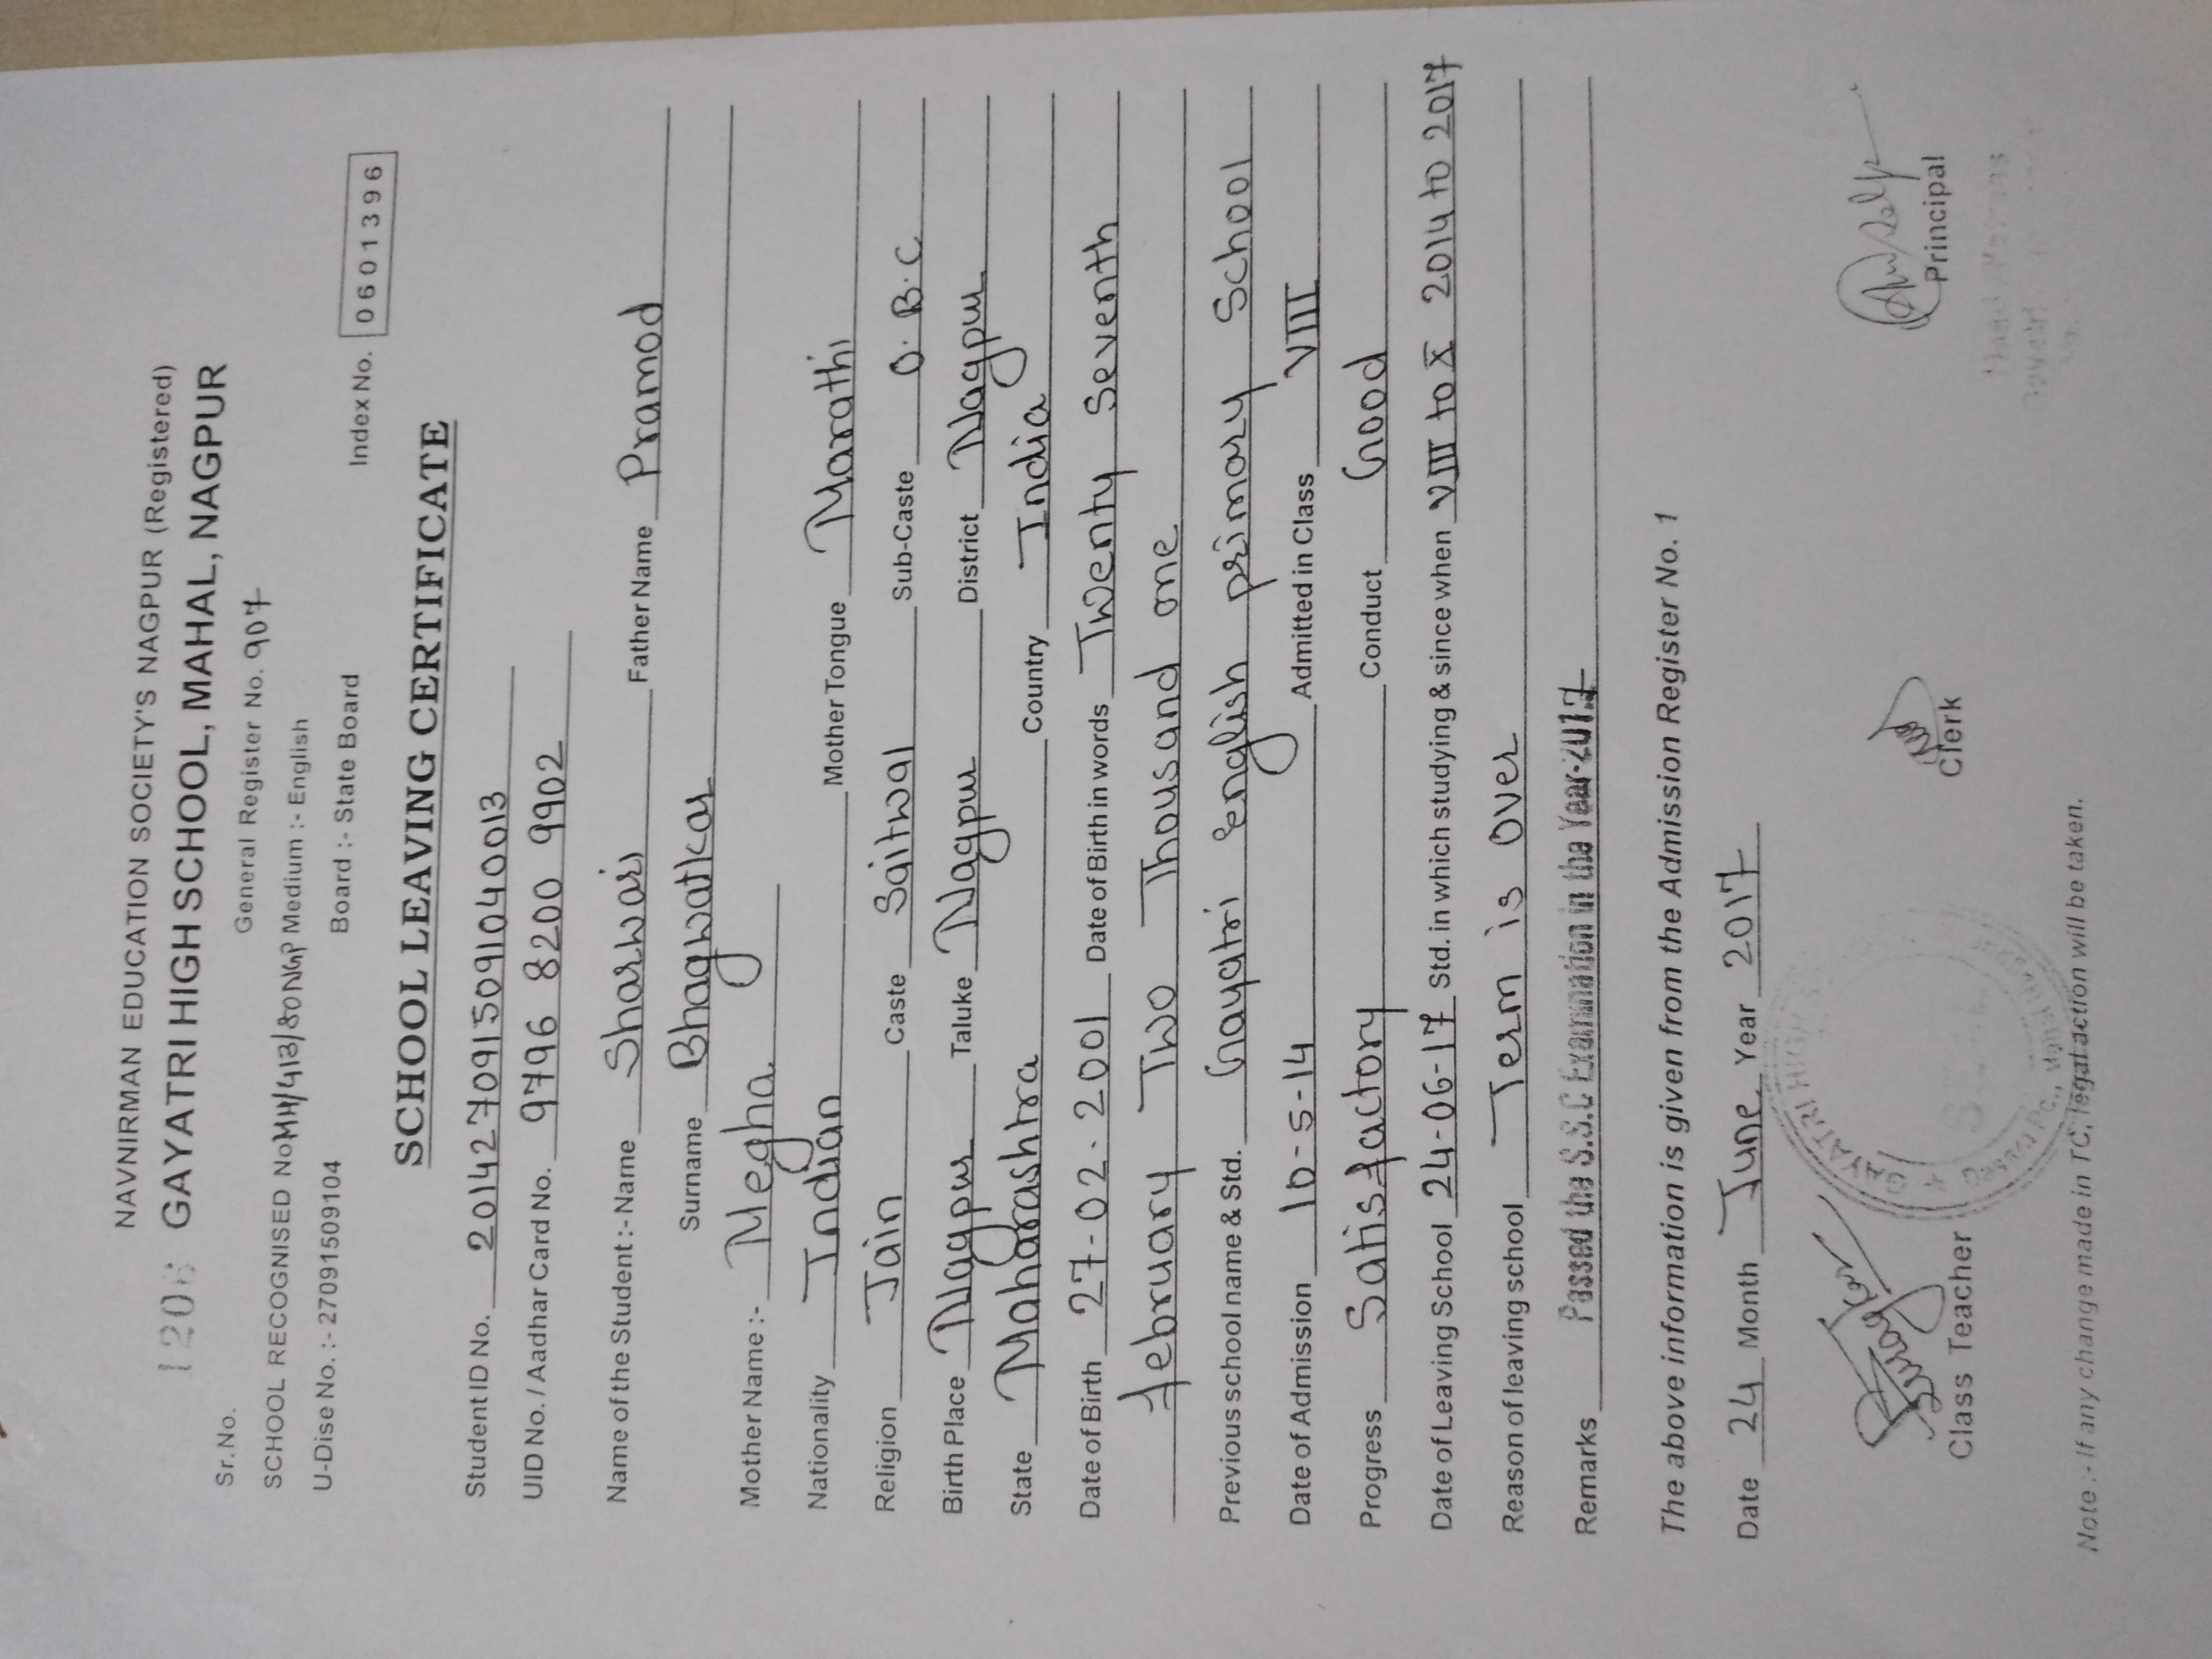 NAVNIRMAN EDUCATION SOCIETY'S NAGPUR (Registered)
Sr.No. 1206 GAYATRI HIGH SCHOOL, MAHAL, NAGPUR
General Register No. 907
SCHOOL RECOGNISED No MH/413/80 NGP Medium :- English
U-Dise No. :- 27091509104 Board :- State Board Index No. 0601396
SCHOOL LEAVING CERTIFICATE
Student ID No. 2014270915091040013
UID No. / Aadhar Card No. 9796 8200 9902
Name of the Student :- Name Sharwari Father Name Pramod
Surname Bhagwatkar
Mother Name :- Megha
Nationality Indian Mother Tongue Marathi
Religion Jain Caste Saitwal Sub-Caste O.B.C
Birth Place Nagpur Taluke Nagpur District Nagpur
State Maharashtra Country India
Date of Birth 27-02-2001 Date of Birth in words Twenty Seventh
february Two Thousand one
Previous school name & Std. Gayatri English primary School
Date of Admission 10-5-14 Admitted in Class VIII
Progress Satisfactory Conduct Good
Date of Leaving School 24-06-17 Std. in which studying & since when VIII to X 2014 to 2017
Reason of leaving school Term is over
Remarks Passed the S.S.C Examination in the Year-2017
The above information is given from the Admission Register No. 1
Date 24 Month June Year 2017
GAYATRI HIGH
Class Teacher Clerk Principal
Note :- If any change made in TC, legal action will be taken.